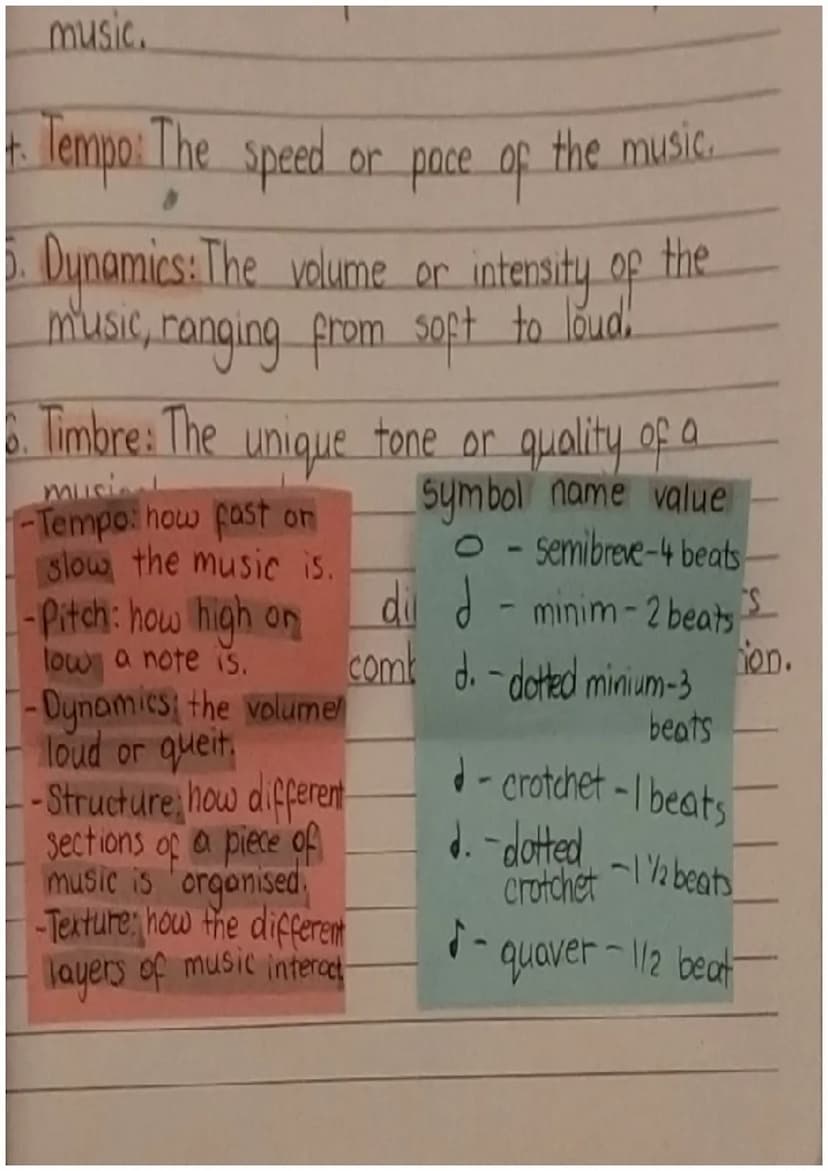 music.
4. Tempo: The speed or pace of the music.
5. Dynamics: The volume or intensity of the
music, ranging from soft to loud.
6. Timbre: The unique tone or quality of a
-Tempo: how fast or
slow the music is.
-Pitch: how high or
low a note is.
-Dynamics: the volume/
loud or queit.
-Structure: how different
sections of a piece of
music is organised.
-Texture: how the different
layers of music interact
symbol name value
- semibreve-4 beats
- minim - 2 beats
- dotted minium-3
beats
- crotchet - 1 beats
- dotted
crotchet - 1 1/2 beats
- quaver - 1/2 beat